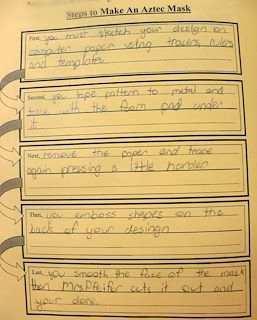 Steps to Make An Aztec Mask
First, you must sketch your design on
computer paper using tracers, rulers
and templates
Second, you tape pattern to metal and
trace with the foam pad under
it
Next, remove the paper and trace
again pressing a little harder
Then, you emboss shapes on the
back of your desingn
Last, you smooth the face of the mask
then Mrs.Pfeifer cuts it out and
your done.